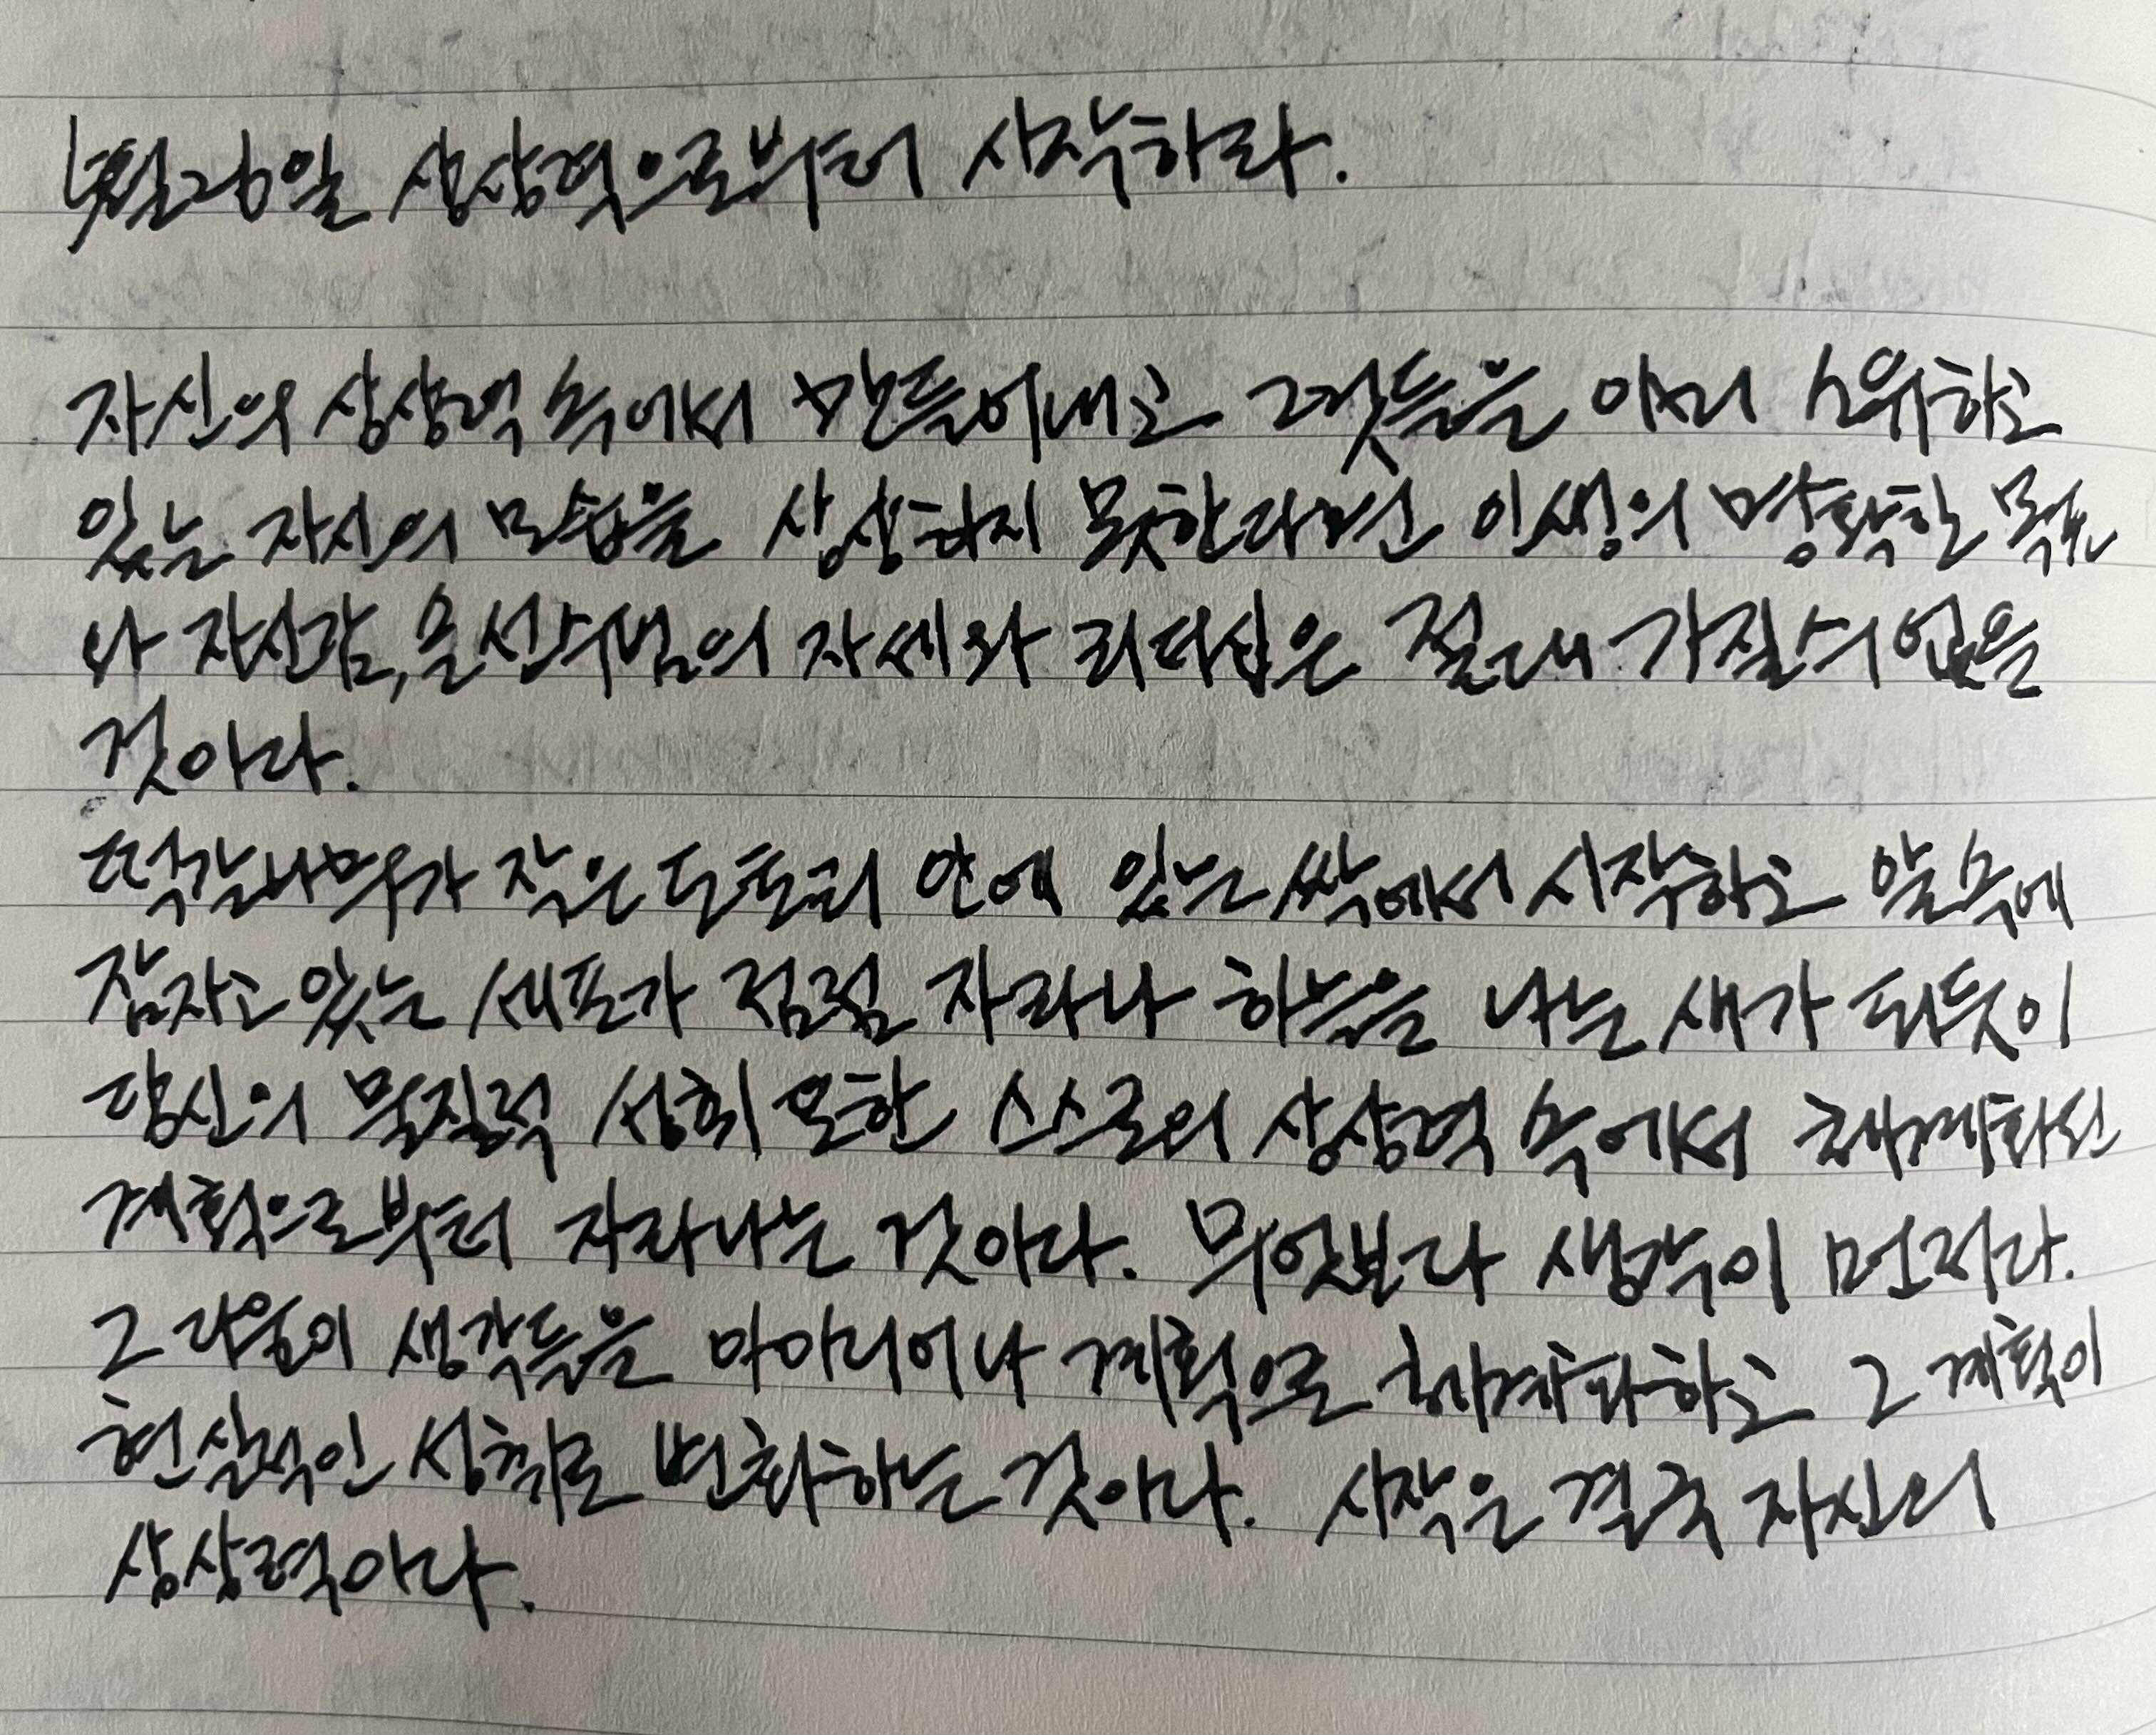 4월 26일 상상력으로부터 시작하라.
자신의 상상력 속에서 만들어내고 그것들을 이미 소유하고
있는 자신의 모습을 상상하지 못한다면 인생의 명확한 목표
나 자신감, 솔선수범의 자세와 리더십은 절대 가질 수 없을
것이다.
떡갈나무가 작은 도토리 안에 있는 싹에서 시작하고 알 속에
잠자고 있는 세포가 점점 자라나 하늘을 나는 새가 되듯이
당신의 물질적 성취 또한 스스로의 상상력 속에서 체계화된
계획으로부터 자라나는 것이다. 무엇보다 생각이 먼저다.
그 다음이 생각들을 아이디어나 계획으로 체계화하고 그 계획이
현실적인 성취로 변화하는 것이다. 시작은 결국 자신의
상상력이다.